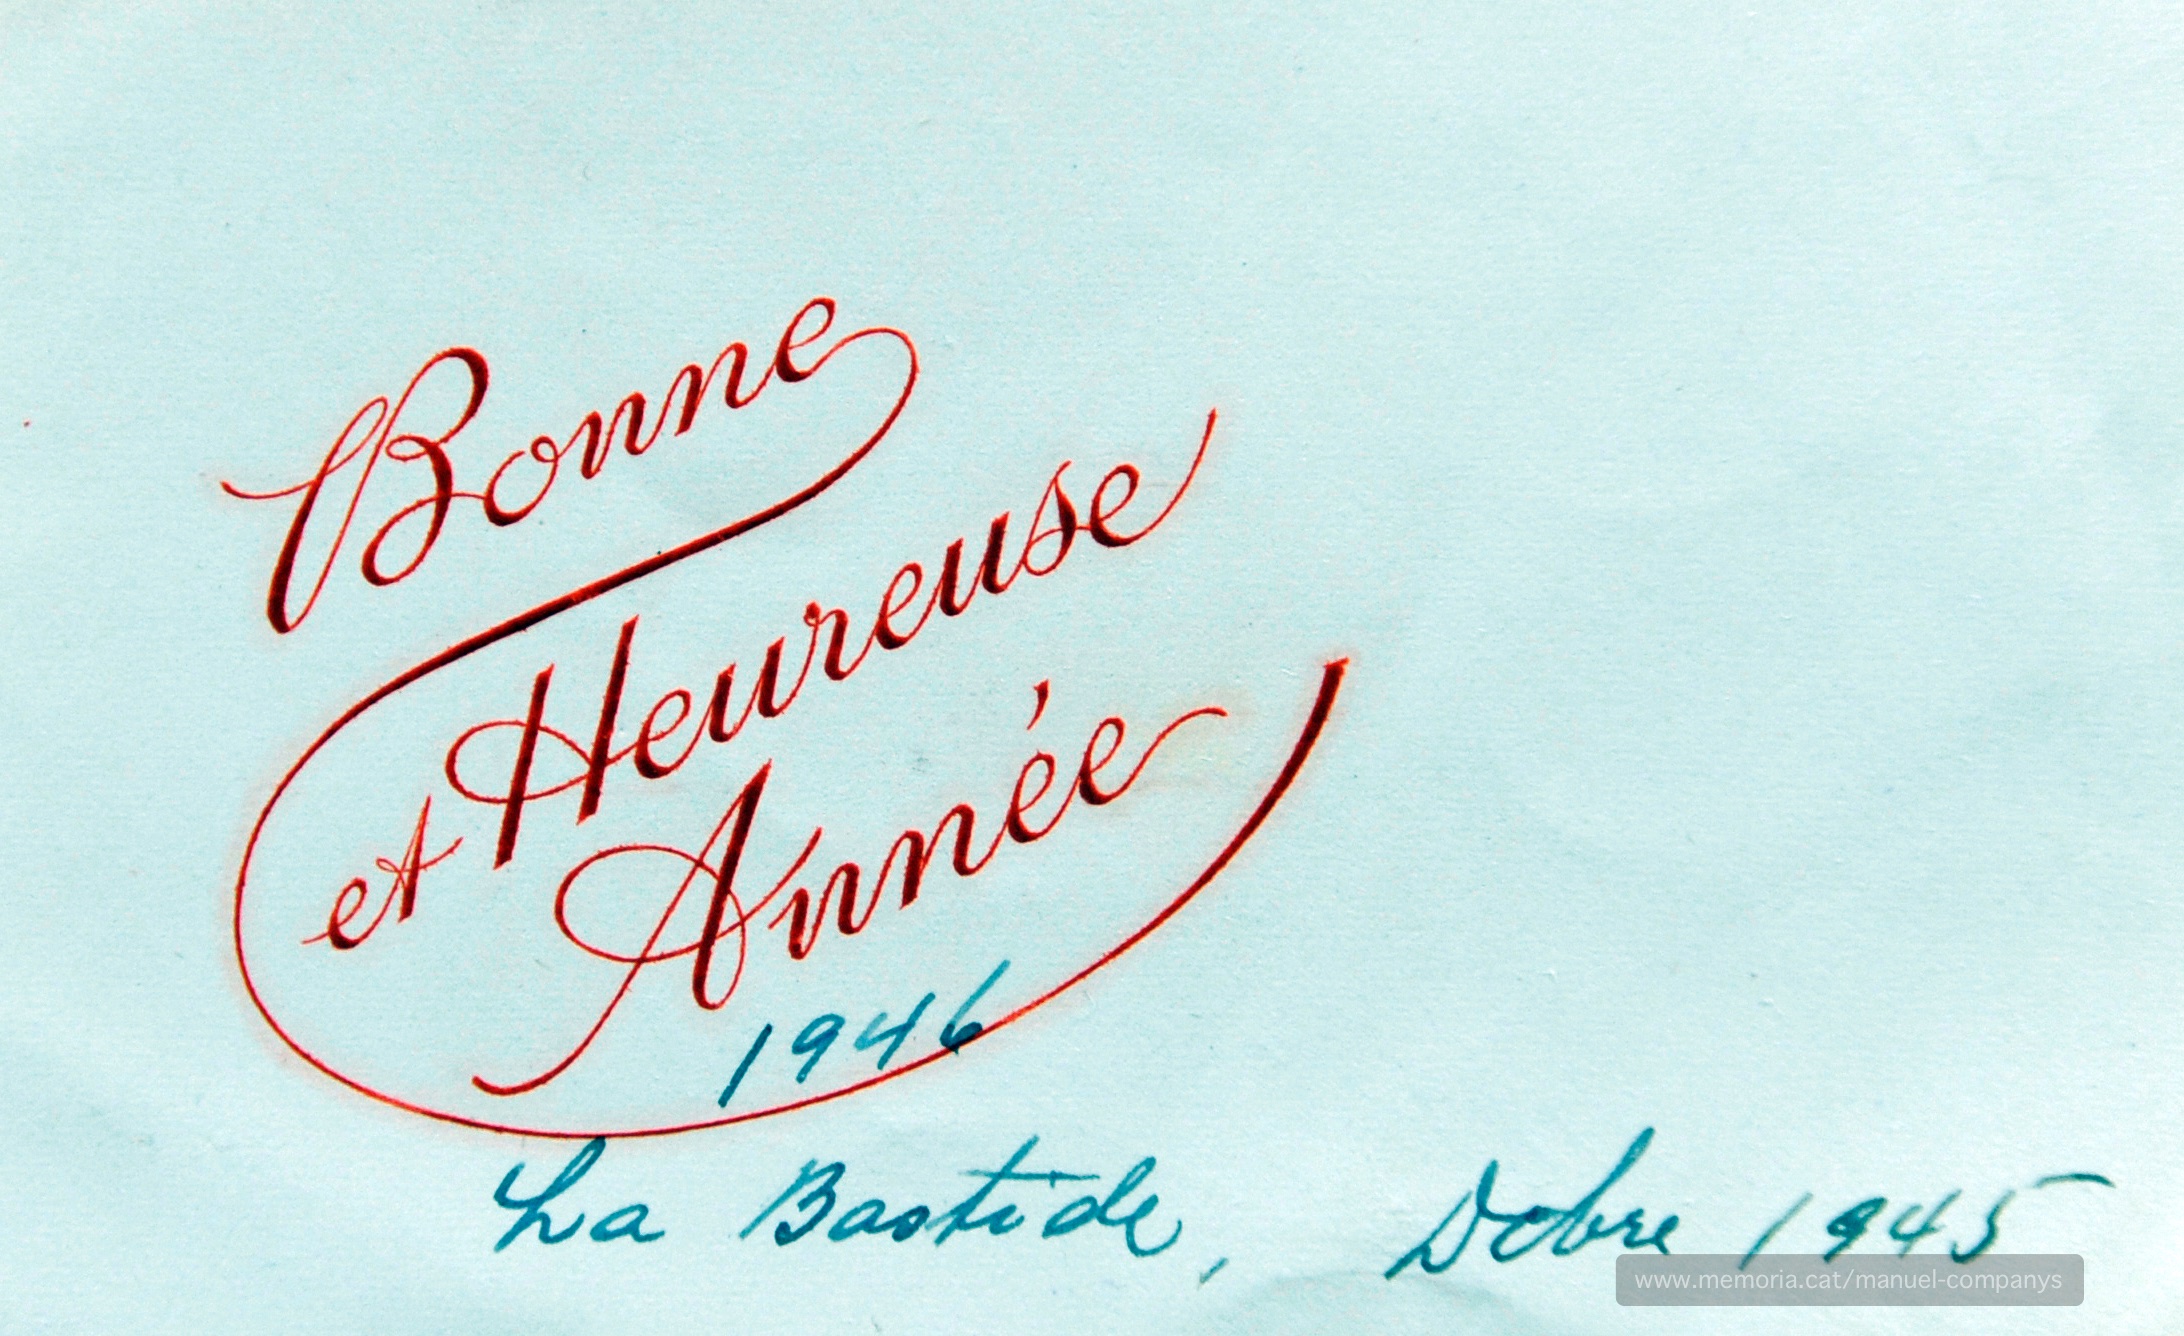 Bonne
et Heureuse
Année
1946
La Bastide, Dcbre 1945
www.memoria.cat/manuel-companys